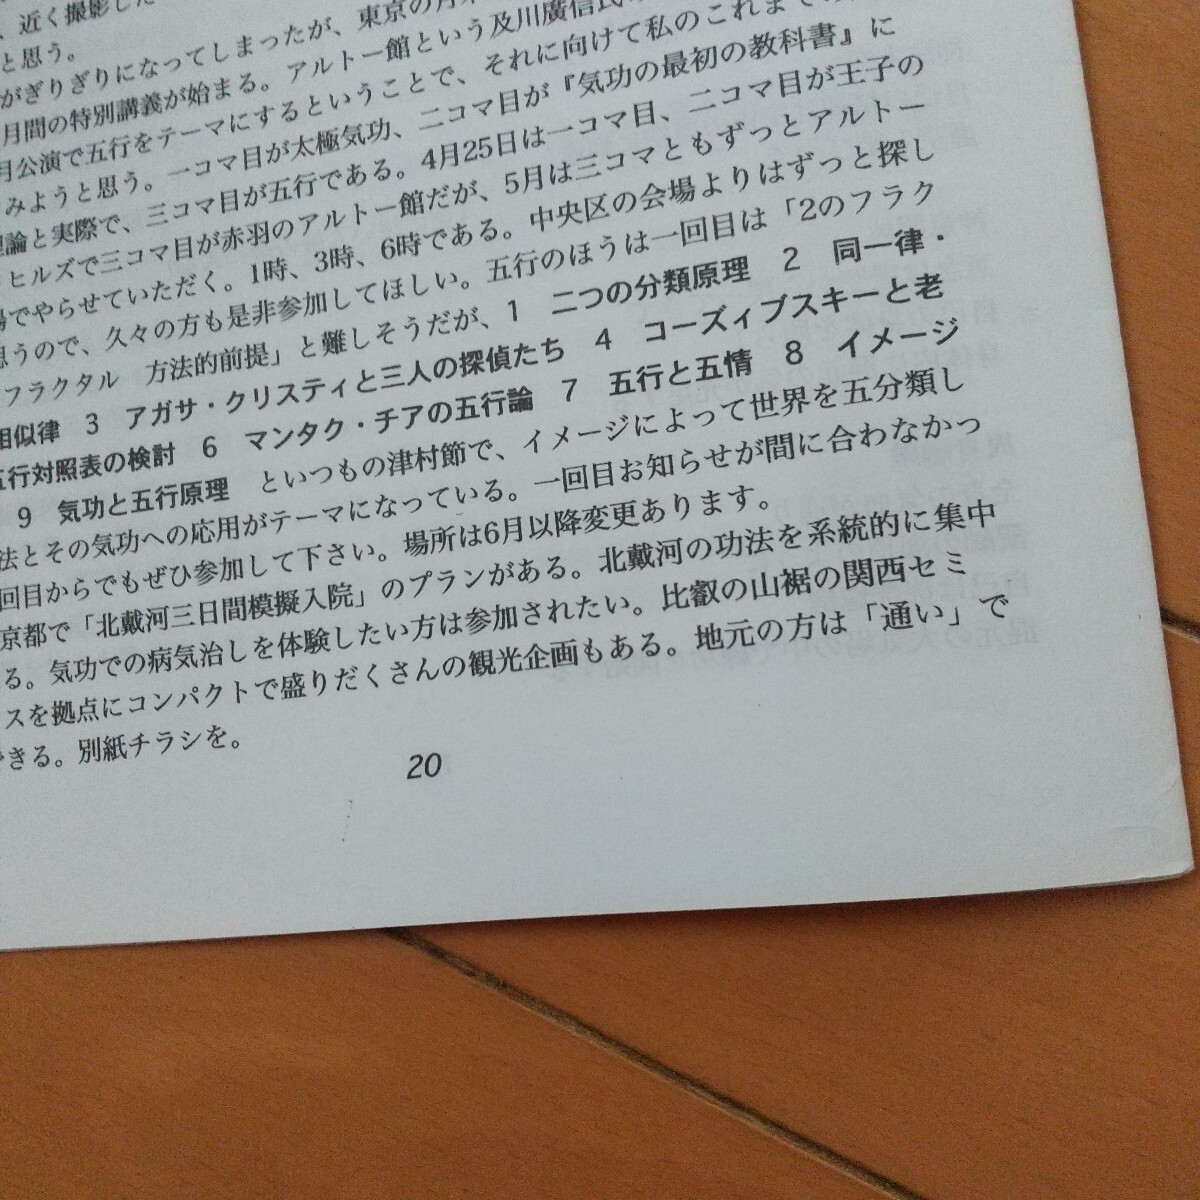 、近く撮影した
と思う。
がぎりぎりになってしまったが、東京の月
月間の特別講義が始まる。アルトー館という及川廣信氏
月公演で五行をテーマにするということで、それに向けて私のこれまでの
みようと思う。一コマ目が太極気功、二コマ目が『気功の最初の教科書』に
理論と実際で、三コマ目が五行である。4月25日は一コマ目、二コマ目が王子の
ヒルズで三コマ目が赤羽のアルトー館だが、5月は三コマともずっとアルトー
場でやらせていただく。1時、3時、6時である。中央区の会場よりはずっと探し
思うので、久々の方も是非参加してほしい。五行のほうは一回目は「2のフラク
フラクタル　方法的前提」と難しそうだが、1　二つの分類原理　2　同一律・
相似律　3　アガサ・クリスティと三人の探偵たち　4　コーズィブスキーと老
五行対照表の検討　6　マンタク・チアの五行論　7　五行と五情　8　イメージ
9　気功と五行原理　といつもの津村節で、イメージによって世界を五分類し
法とその気功への応用がテーマになっている。一回目お知らせが間に合わなかっ
回目からでもぜひ参加して下さい。場所は6月以降変更あります。
京都で「北戴河三日間模擬入院」のプランがある。北戴河の功法を系統的に集中
る。気功での病気治しを体験したい方は参加されたい。比叡の山裾の関西セミ
スを拠点にコンパクトで盛りだくさんの観光企画もある。地元の方は「通い」で
できる。別紙チラシを。
20